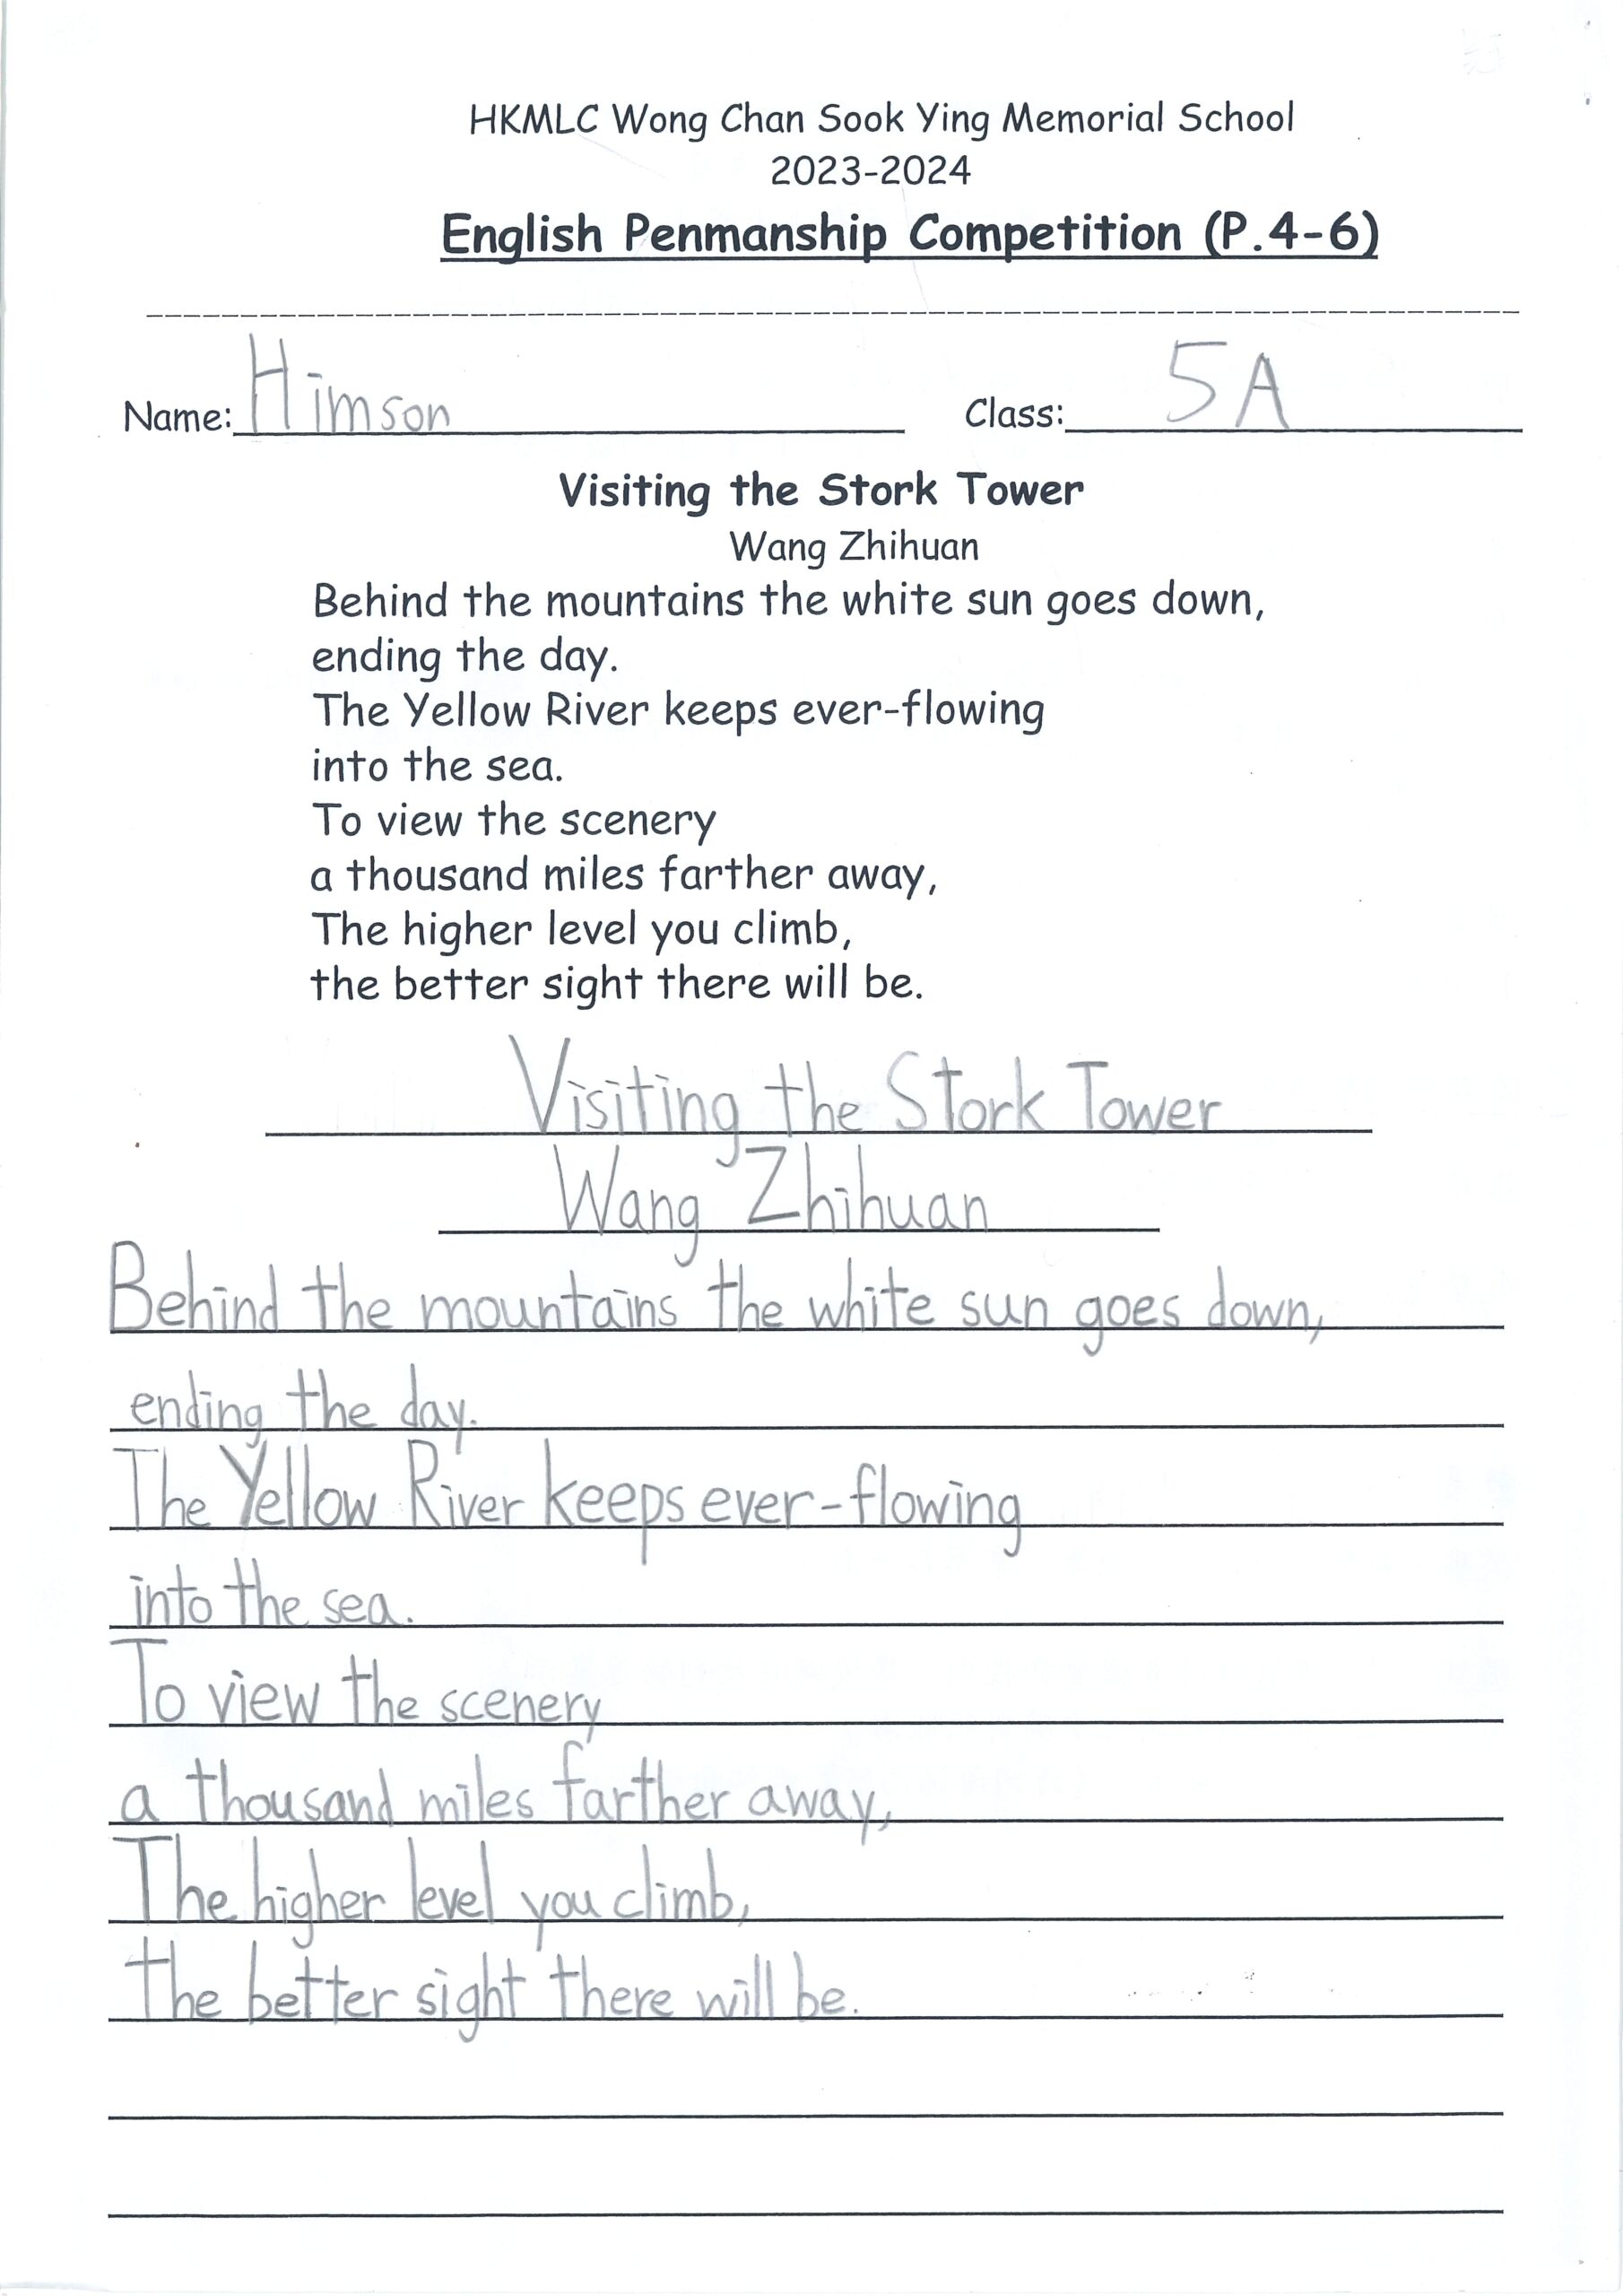 HKMLC Wong Chan Sook Ying Memorial School
2023-2024
English Penmanship Competition (P.4-6)
Name: Himson Class: 5A
Visiting the Stork Tower
Wang Zhihuan
Behind the mountains the white sun goes down,
ending the day.
The Yellow River keeps ever-flowing
into the sea.
To view the scenery
a thousand miles farther away,
The higher level you climb,
the better sight there will be.
Visiting the Stork Tower
Wang Zhihuan
Behind the mountains the white sun goes down,
ending the day.
The Yellow River keeps ever-flowing
into the sea.
To view the scenery
a thousand miles farther away,
The higher level you climb,
the better sight there will be.